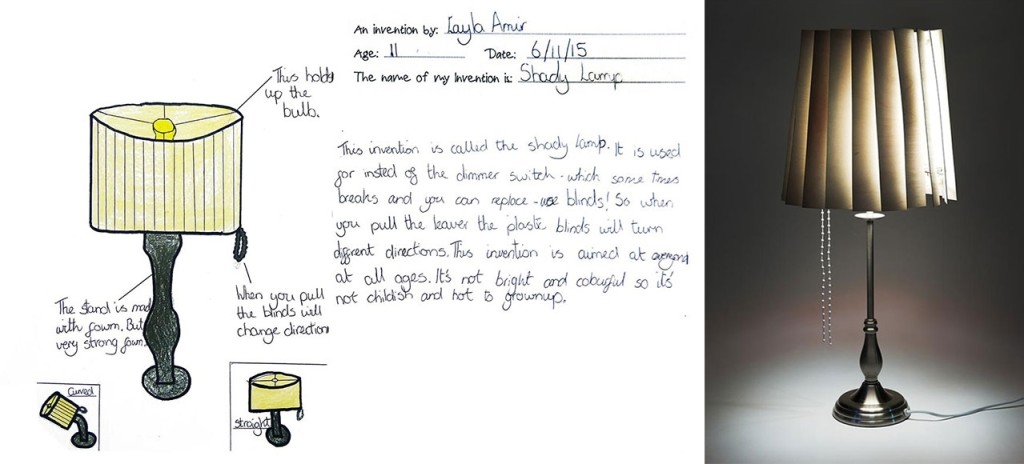 An invention by: Layla Amir
Age: 11 Date: 6/11/15
The name of my Invention is: Shady Lamp
This holds
up the
bulb.
This invention is called the shady lamp. It is used
for insted of the dimmer switch - which some times
breaks and you can replace - use blinds! So when
you pull the leaver the plastic blinds will turn
different directions. This invention is aimed at everyone
at all ages. It's not bright and colourful so it's
not childish and not to grownup.
The stand is made
with fowm. But
very strong fowm.
When you pull
the blinds will
change direction
Curved
straight